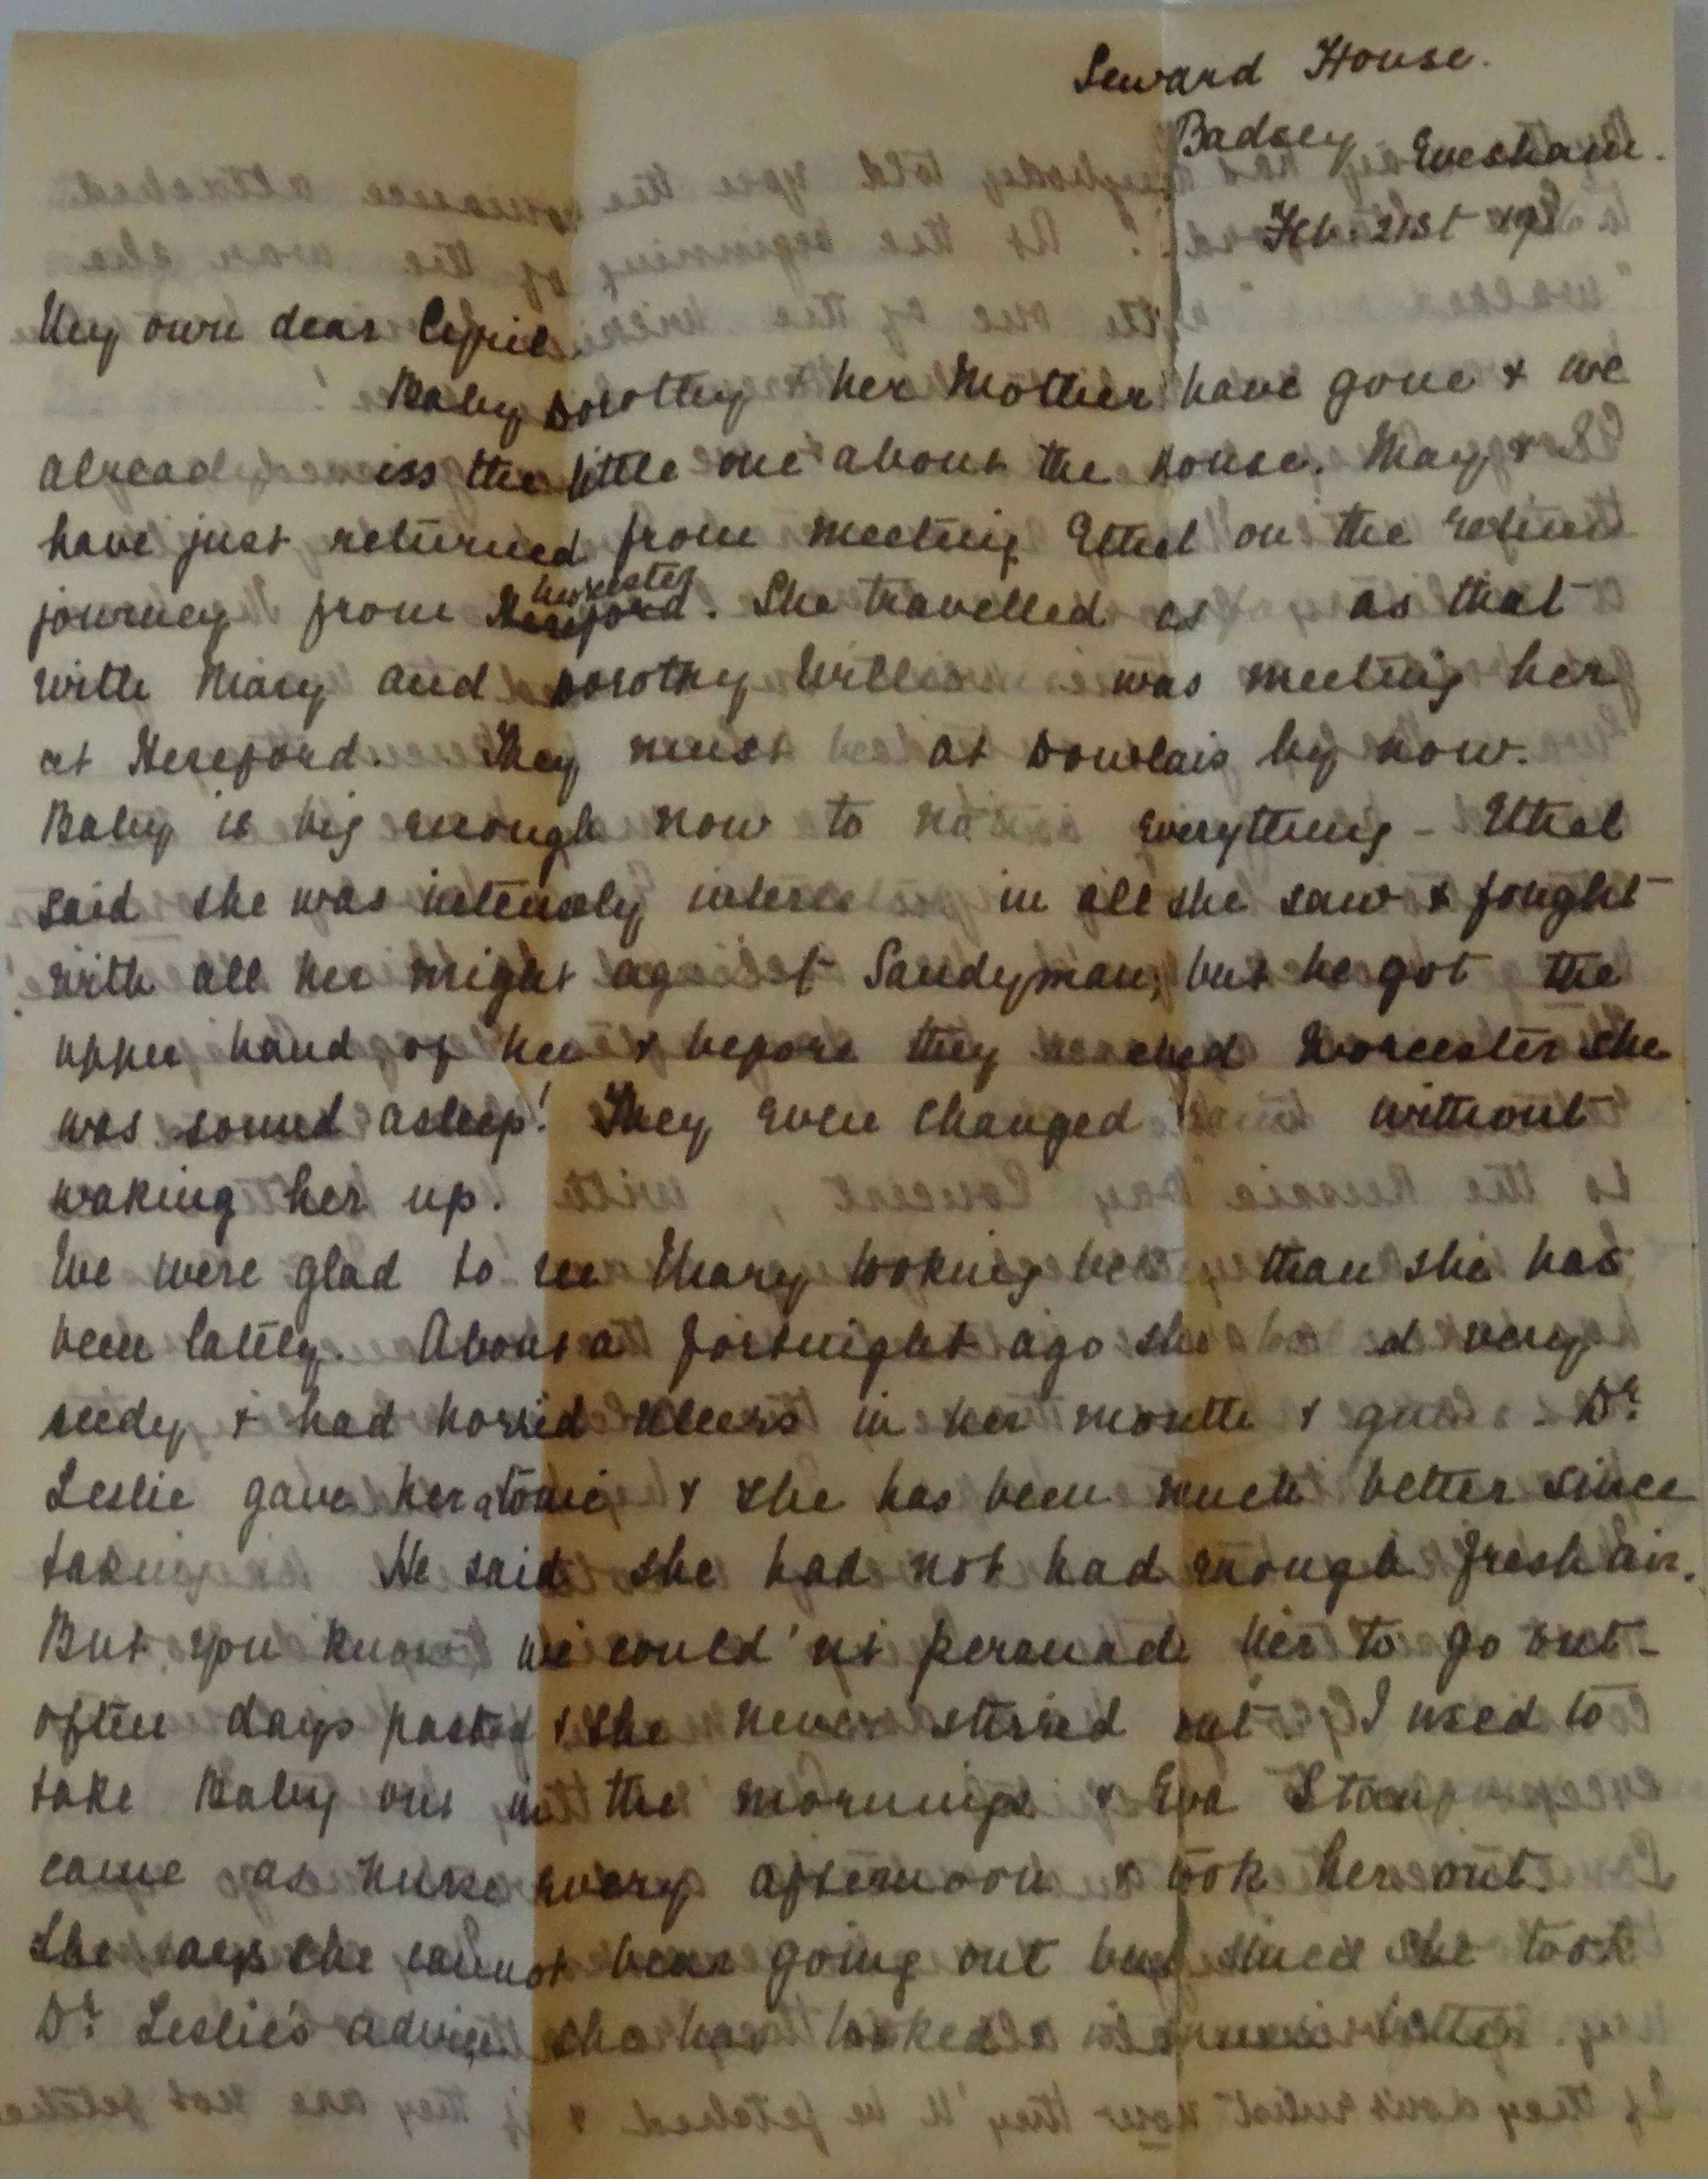 Seward House.
Badsey Evesham.
Feb. 21st
My own dear Cyril
Baby Dorothy & her Mother have gone & we
already iss the little one about the house. May &
have just returned from meeting Ethel on the return
journey from Hereford Worcester. She travelled as as that
with Mary and Dorothy Will was meeting her
at Hereford. They must at Dowlais by now.
Baby is big enough now to everything - Ethel
said she was intensely in all she saw & fought
with all her might Sandyman, but he got the
upper hand of her & before they Worcester she
was sound asleep! They even changed without
waking her up.
We were glad to see Mary looking than she has
been lately. About a fortnight ago she very
seedy & had horrid ulcers in her mouth & - Dr
Leslie gave her a tonic & she has been much better since
taking He said she had not had enough fresh air.
But you know we could'nt persuade her to go out -
often days passed & she never stirred out I used to
take Baby out in the mornings & Eva
came as nurse every afternoon & took her out.
She says she cannot bear going out but since she took
Dr Leslie's advice she has looked better.